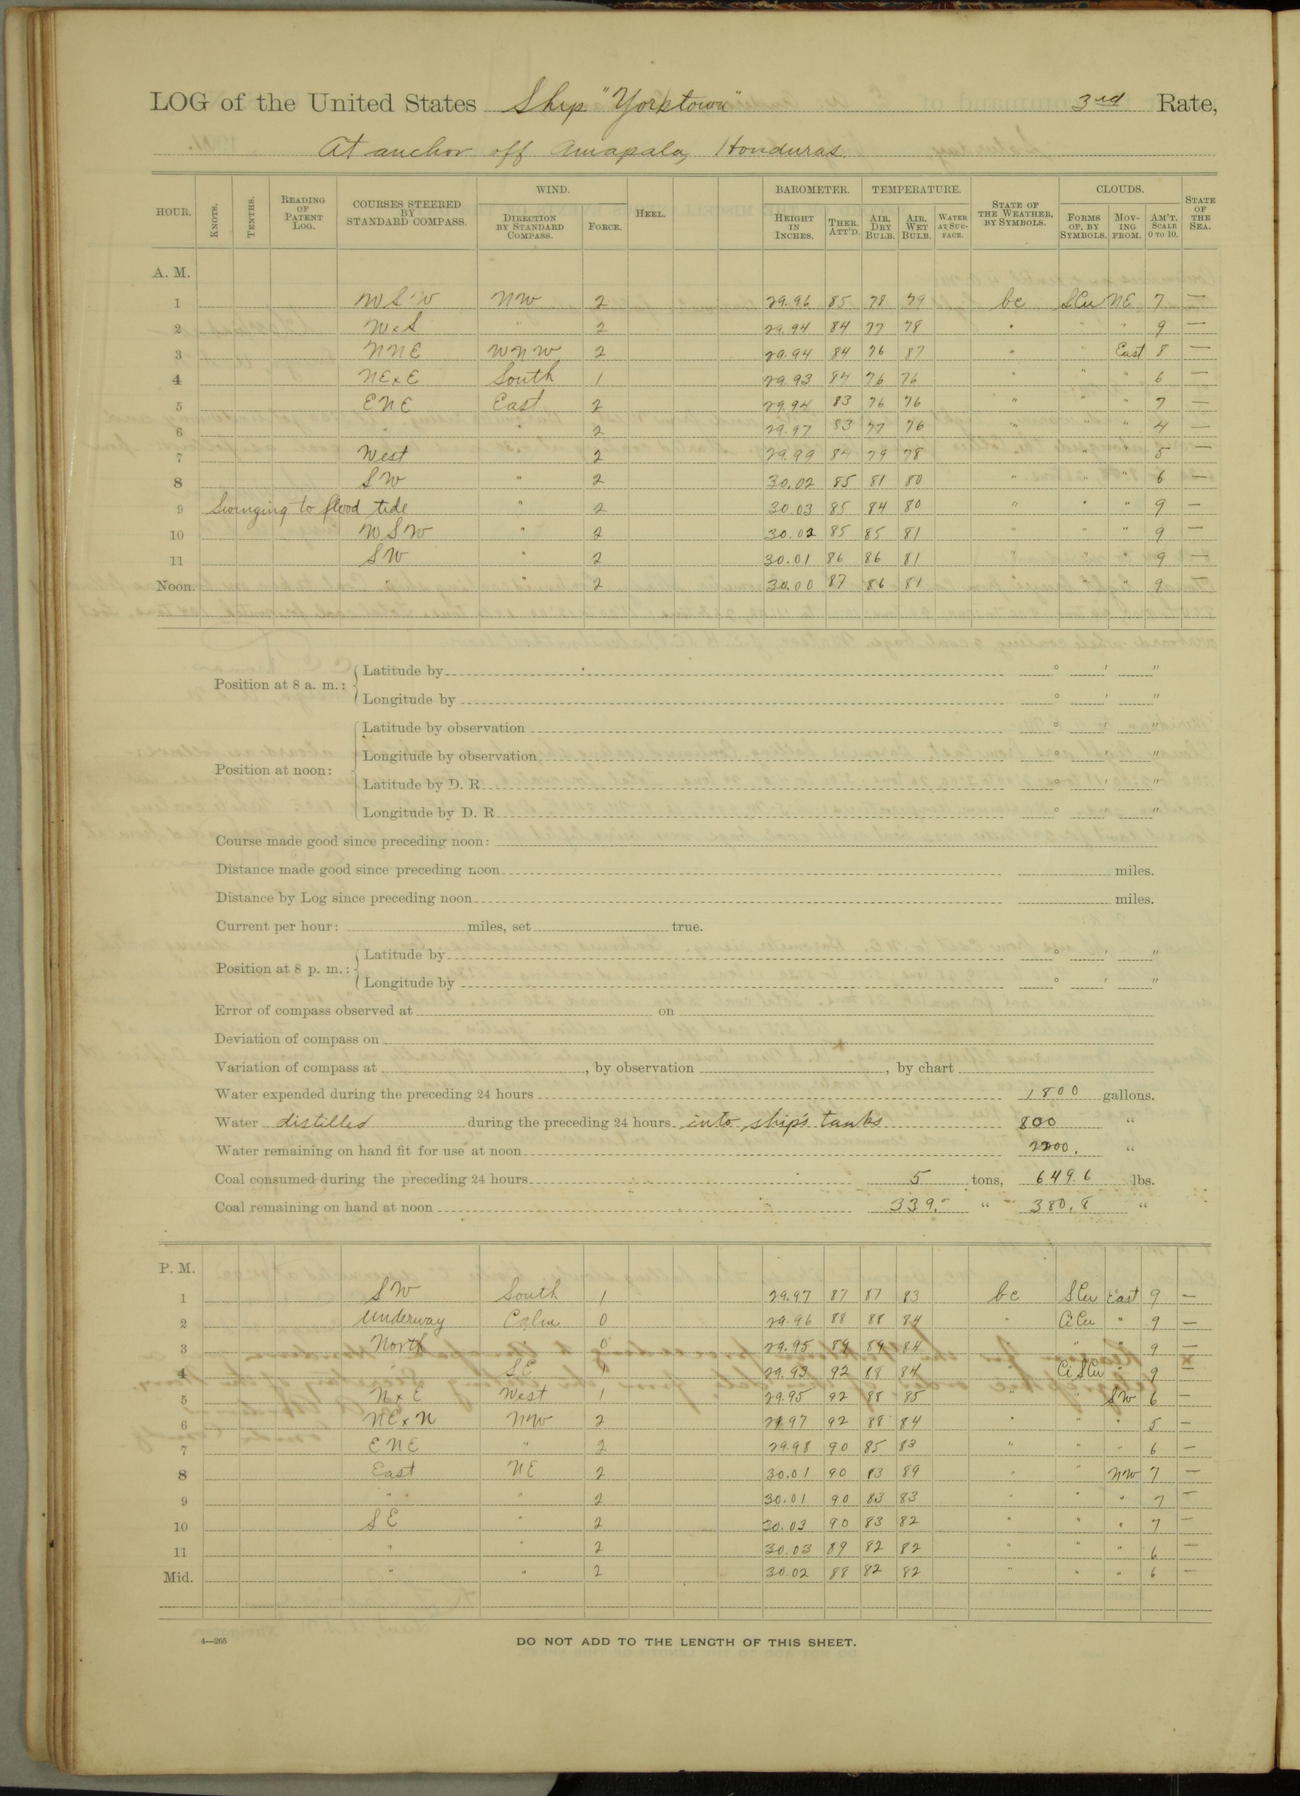 LOG of the United States Ship "Yorktown" 3rd Rate,
At anchor off Amapala, Honduras.
HOUR. KNOTS. TENTHS. READING OF PATENT LOG. COURSES STEERED BY STANDARD COMPASS. WIND. DIRECTION BY STANDARD COMPASS. FORCE. HEEL. BAROMETER. HEIGHT IN INCHES. THER. ATT'D. TEMPERATURE. AIR, DRY BULB. AIR, WET BULB. WATER AT SURFACE. STATE OF THE WEATHER, BY SYMBOLS. CLOUDS. FORMS OF, BY SYMBOLS. MOVING FROM. AM'T. SCALE 0 TO 10. STATE OF THE SEA.
A. M.
1 WSW NW 2 29.96 85 78 79 bc SCu NE 7 —
2 WxS " 2 29.94 84 77 78 " " " 9 —
3 NNE WNW 2 29.94 84 76 87 " " East 8 —
4 NExE South 1 29.93 84 76 76 " " " 6 —
5 ENE East 2 29.94 83 76 76 " " " 7 —
6 " " 2 29.97 83 77 76 " " " 4 —
7 West " 2 29.99 84 79 78 " " " 5 —
8 SW " 2 30.02 85 81 80 " " " 6 —
9 Swinging to flood tide " 2 30.03 85 84 80 " " " 9 —
10 WSW " 2 30.02 85 85 81 " " " 9 —
11 SW " 2 30.01 86 86 81 " " " 9 —
Noon. " " 2 30.00 87 86 81 " " " 9 —
Position at 8 a. m.: Latitude by ° ' "
Longitude by ° ' "
Position at noon: Latitude by observation ° ' "
Longitude by observation ° ' "
Latitude by D. R. ° ' "
Longitude by D. R. ° ' "
Course made good since preceding noon:
Distance made good since preceding noon miles.
Distance by Log since preceding noon miles.
Current per hour: miles, set true.
Position at 8 p. m.: Latitude by ° ' "
Longitude by ° ' "
Error of compass observed at on
Deviation of compass on
Variation of compass at , by observation , by chart
Water expended during the preceding 24 hours 1800 gallons.
Water distilled during the preceding 24 hours into ship's tanks 800 "
Water remaining on hand fit for use at noon 2200. "
Coal consumed during the preceding 24 hours 5 tons, 649.6 lbs.
Coal remaining on hand at noon 339.- " 380.8 "
P. M.
1 SW South 1 29.97 87 87 83 bc SCu East 9 —
2 Underway Calm 0 29.96 88 88 84 " CiCu " 9 —
3 North " 0 29.95 89 89 84 " " 9 —
4 SE 1 29.93 92 88 84 CiSCu " 9 —
5 NxE West 1 29.95 92 88 85 " " SW 6 —
6 NExN NW 2 29.97 92 88 84 " " " 5 —
7 ENE " 2 29.98 90 85 83 " " " 6 —
8 East NE 2 30.01 90 83 89 " " NW 7 —
9 " " 2 30.01 90 83 83 " " " 7 —
10 SE " 2 30.03 90 83 82 " " " 7 —
11 " " 2 30.03 89 82 82 " " " 6 —
Mid. " " 2 30.02 88 82 82 " " " 6 —
4—265
DO NOT ADD TO THE LENGTH OF THIS SHEET.